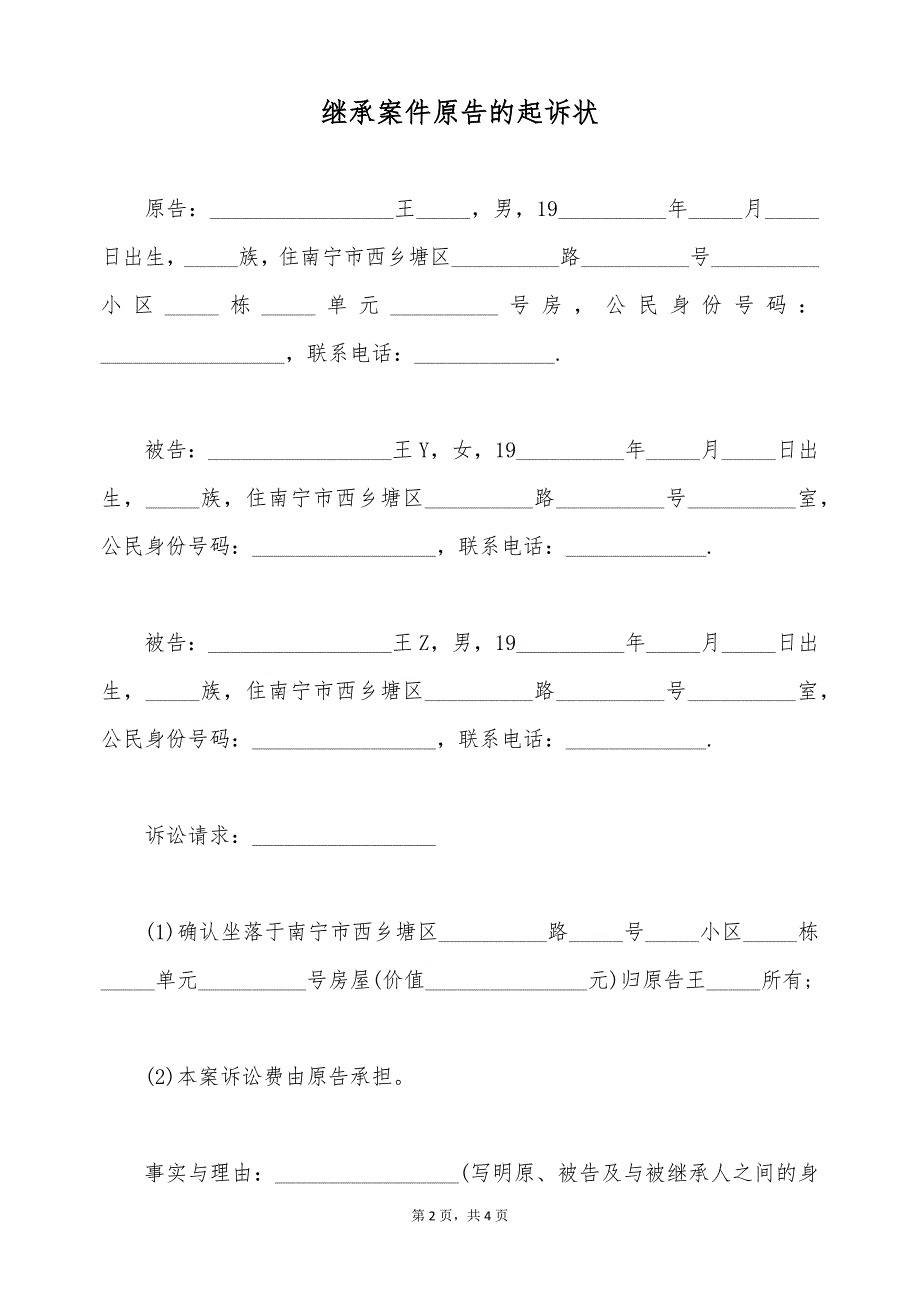 继承案件原告的起诉状
原告：_________________王_____，男，19__________年_____月_____
日出生，_____族，住南宁市西乡塘区__________路__________号__________
小区_____栋_____单元__________号房，公民身份号码：
_________________，联系电话：_____________.
被告：_________________王Y，女，19__________年_____月_____日出
生，_____族，住南宁市西乡塘区__________路__________号__________室，
公民身份号码：_________________，联系电话：_____________.
被告：_________________王Z，男，19__________年_____月_____日出
生，_____族，住南宁市西乡塘区__________路__________号__________室，
公民身份号码：_________________，联系电话：_____________.
诉讼请求：_________________
(1)确认坐落于南宁市西乡塘区__________路_____号_____小区_____栋
_____单元__________号房屋(价值_______________元)归原告王_____所有;
(2)本案诉讼费由原告承担。
事实与理由：_________________(写明原、被告及与被继承人之间的身
第 2 页，共 4 页